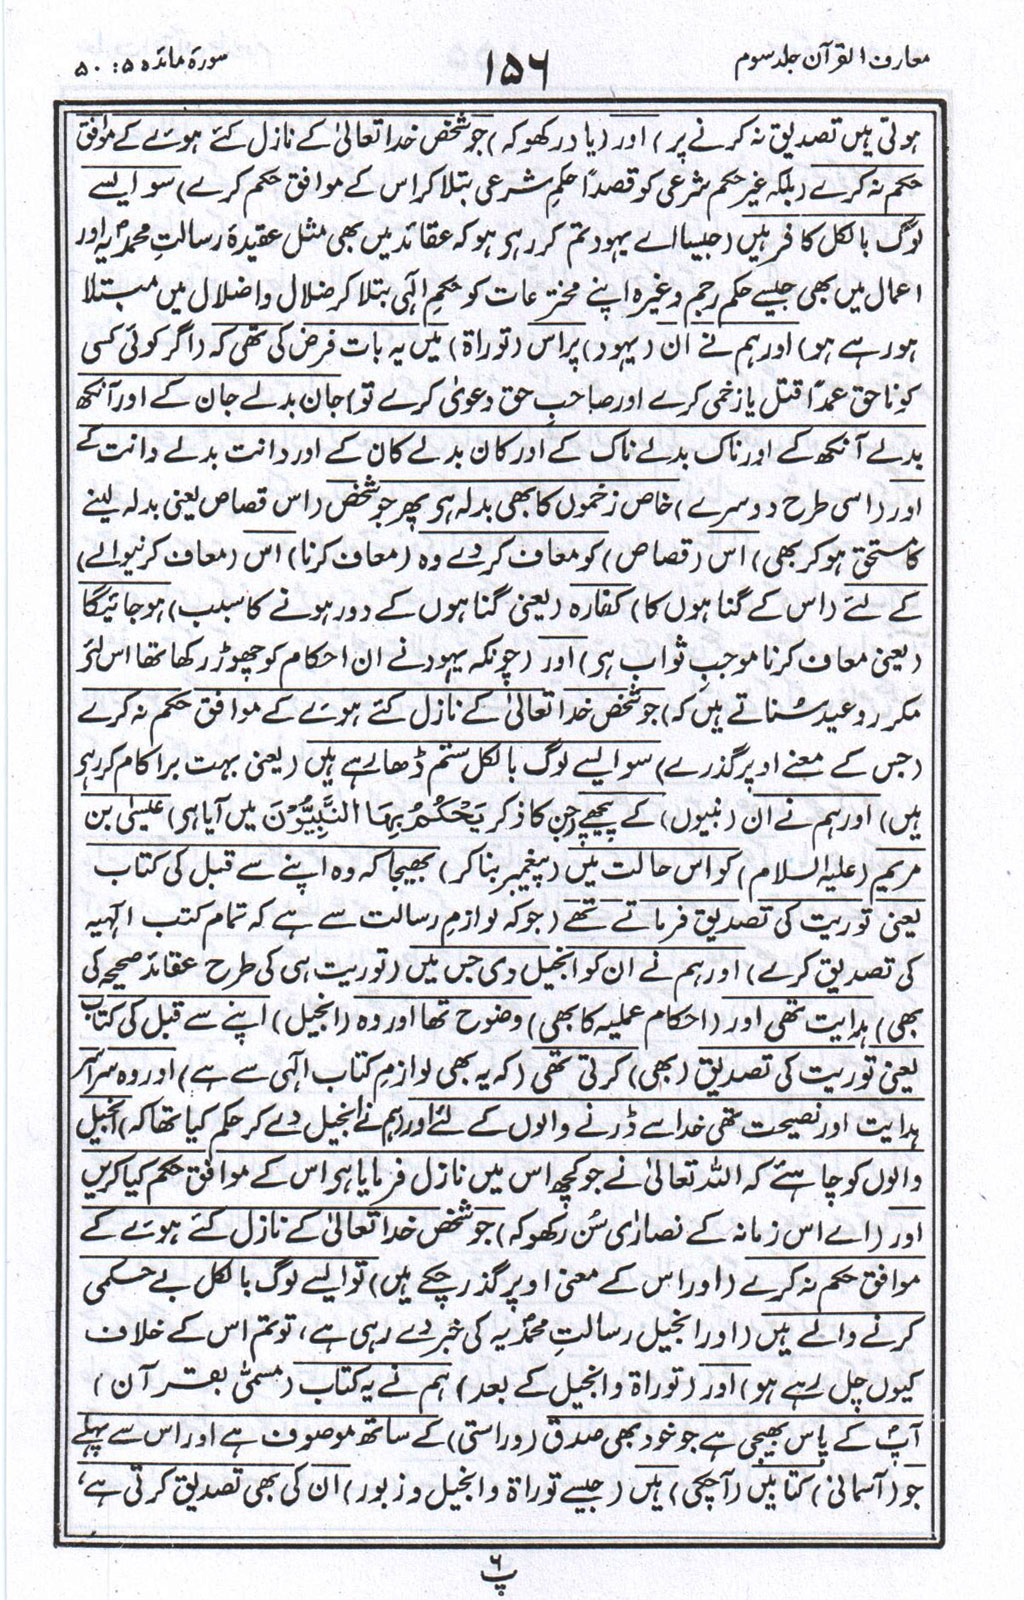 معارف القرآن جلد سوم
۱۵۶
سورۃ مائدہ ۵ : ۵۰
ہوتی ہیں تصدیق نہ کرنے پر) اور (یاد رکھو کہ) جو شخص خدا تعالیٰ کے نازل کئے ہوئے کے موافق
حکم نہ کرے (بلکہ غیر حکم شرعی کو قصداً حکمِ شرعی بتلا کر اس کے موافق حکم کرے) سو ایسے
لوگ بالکل کافر ہیں (جیسا اے یہود تم کر رہے ہو کہ عقائد میں بھی مثل عقیدۂ رسالتِ محمدؐیہ اور
اعمال میں بھی جیسے حکم رجم وغیرہ اپنے مخترعات کو حکمِ الٰہی بتلا کر ضلال و اضلال میں مبتلا
ہو رہے ہو) اور ہم نے ان (یہود) پر اس (توراۃ) میں یہ بات فرض کی تھی کہ (اگر کوئی کسی
کو ناحق عمداً قتل یا زخمی کرے اور صاحبِ حق دعویٰ کرے تو) جان بدلے جان کے اور آنکھ
بدلے آنکھ کے اور ناک بدلے ناک کے اور کان بدلے کان کے اور دانت بدلے دانت کے
اور (اسی طرح دوسرے) خاص زخموں کا بھی بدلہ ہی پھر جو شخص (اس قصاص یعنی بدلہ لینے
کا مستحق ہو کر بھی) اس (قصاص) کو معاف کر دے وہ (معاف کرنا) اس (معاف کرنیوالے)
کے لئے (اس کے گناہوں کا) کفارہ (یعنی گناہوں کے دور ہونے کا سبب) ہو جائیگا
(یعنی معاف کرنا موجبِ ثواب ہی) اور (چونکہ یہود نے ان احکام کو چھوڑ رکھا تھا اس لئے
مکرر وعید سُناتے ہیں کہ) جو شخص خدا تعالیٰ کے نازل کئے ہوئے کے موافق حکم نہ کرے
(جس کے معنے اوپر گذرے) سو ایسے لوگ بالکل ستم ڈھا رہے ہیں (یعنی بہت برا کام کر رہے
ہیں) اور ہم نے ان (نبیوں) کے پیچھے (جن کا ذکر یَحْکُمُ بِهَا النَّبِیُّوْنَ میں آیا ہی) عیسیٰ بن
مریم (علیہ السلام) کو اس حالت میں (پیغمبر بنا کر) بھیجا کہ وہ اپنے سے قبل کی کتاب
یعنی توریت کی تصدیق فرماتے تھے (جو کہ لوازمِ رسالت سے ہے کہ تمام کتب الٰہیہ
کی تصدیق کرے) اور ہم نے ان کو انجیل دی جس میں (توریت ہی کی طرح عقائد صحیحہ کی
بھی) ہدایت تھی اور (احکام عملیہ کا بھی) وضوح تھا اور وہ (انجیل) اپنے سے قبل کی کتاب
یعنی توریت کی تصدیق (بھی) کرتی تھی (کہ یہ بھی لوازمِ کتاب الٰہی سے ہے) اور وہ سراسر
ہدایت اور نصیحت تھی خدا سے ڈرنے والوں کے لئے اور (ہم نے انجیل دے کر حکم کیا تھا کہ) انجیل
والوں کو چاہئے کہ اللہ تعالیٰ نے جو کچھ اس میں نازل فرمایا ہی اس کے موافق حکم کیا کریں
اور (اے اس زمانہ کے نصارٰی سُن رکھو کہ) جو شخص خدا تعالیٰ کے نازل کئے ہوئے کے
موافق حکم نہ کرے (اور اس کے معنی اوپر گذر چکے ہیں) تو ایسے لوگ بالکل بے حکمی
کرنے والے ہیں (اور انجیل رسالتِ محمدؐیہ کی خبر دے رہی ہے، تو تم اس کے خلاف
کیوں چل رہے ہو) اور (توراۃ و انجیل کے بعد) ہم نے یہ کتاب (مسمّٰی بقرآن)
آپؐ کے پاس بھیجی ہے جو خود بھی صدق (و راستی) کے ساتھ موصوف ہے اور اس سے پہلے
جو (آسمانی) کتابیں (آچکی) ہیں (جیسے توراۃ و انجیل و زبور) ان کی بھی تصدیق کرتی ہے،
پ ۶